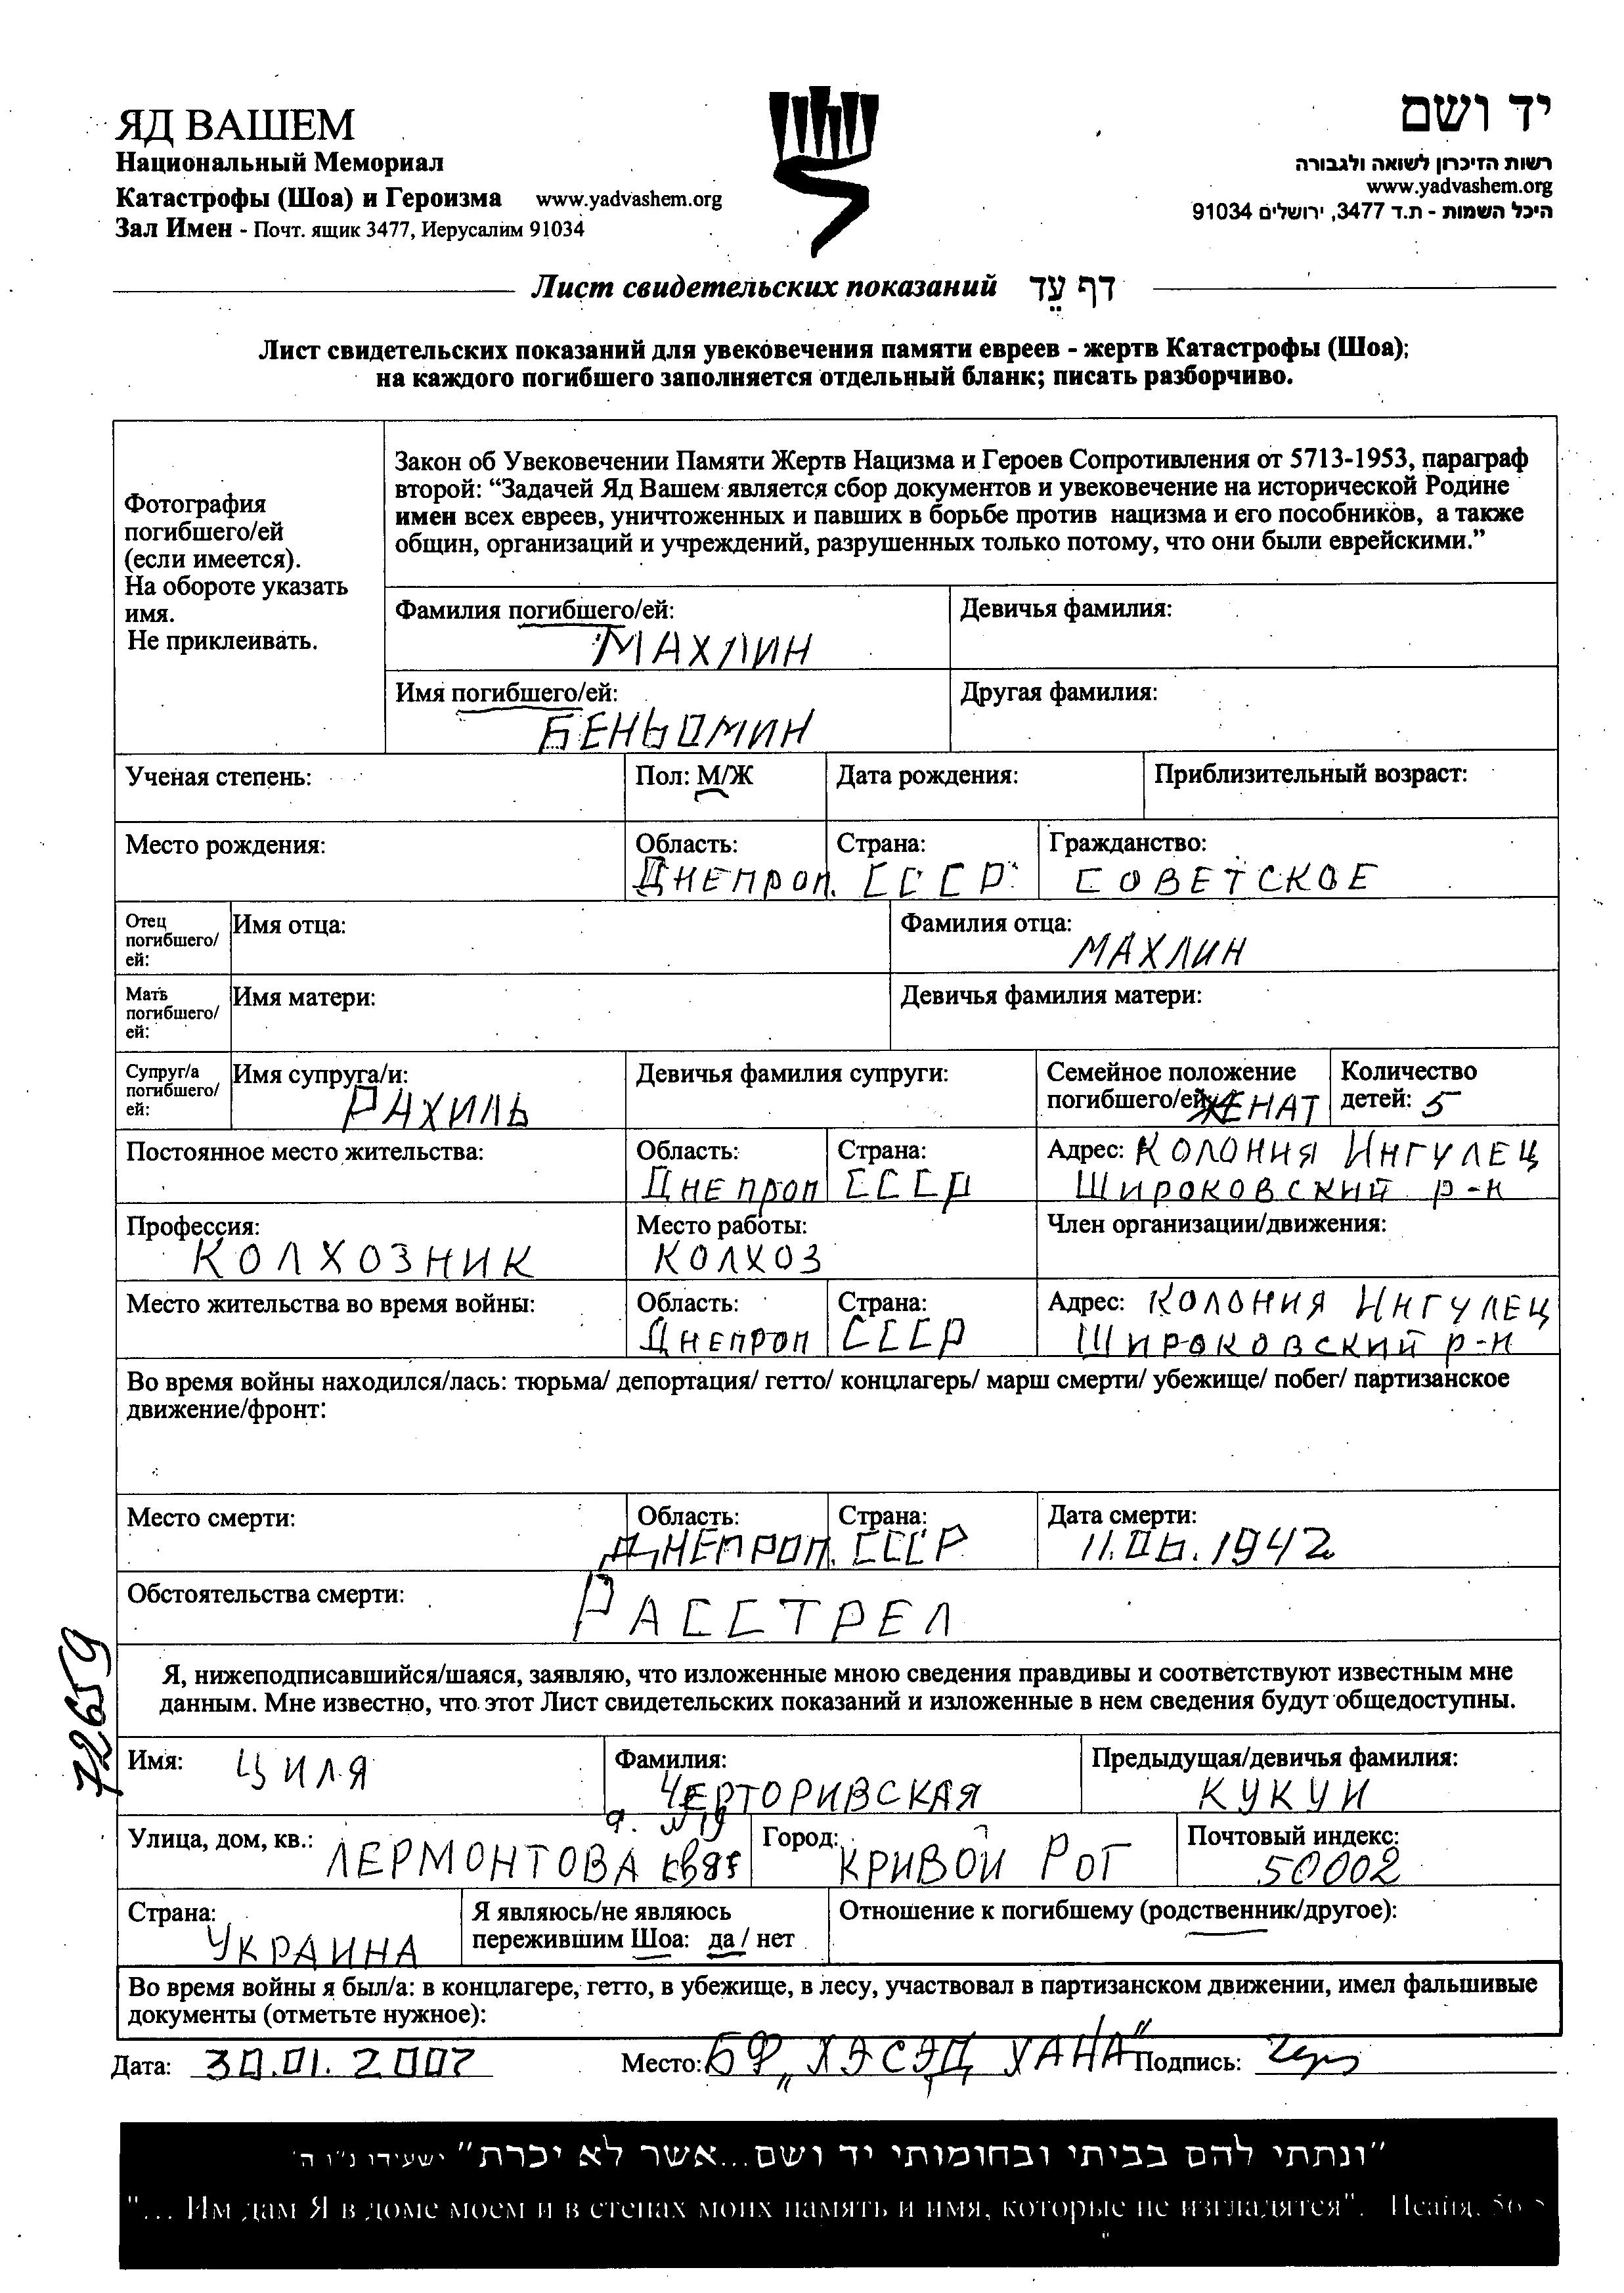 ЯД ВАШЕМ
Национальный Мемориал
Катастрофы (Шоа) и Героизма www.yadvashem.org
Зал Имен - Почт. ящик 3477, Иерусалим 91034
יד ושם
רשות הזיכרון לשואה ולגבורה
www.yadvashem.org
היכל השמות - ת.ד 3477, ירושלים 91034
Лист свидетельских показаний דף עֵד
Лист свидетельских показаний для увековечения памяти евреев - жертв Катастрофы (Шоа);
на каждого погибшего заполняется отдельный бланк; писать разборчиво.
Фотография
погибшего/ей
(если имеется).
На обороте указать
имя.
Не приклеивать.
Закон об Увековечении Памяти Жертв Нацизма и Героев Сопротивления от 5713-1953, параграф
второй: “Задачей Яд Вашем является сбор документов и увековечение на исторической Родине
имен всех евреев, уничтоженных и павших в борьбе против нацизма и его пособников, а также
общин, организаций и учреждений, разрушенных только потому, что они были еврейскими.”
Фамилия погибшего/ей: Девичья фамилия:
МАХЛИН
Имя погибшего/ей: Другая фамилия:
БЕНЬОМИН
Ученая степень: Пол: М/Ж Дата рождения: Приблизительный возраст:
Место рождения: Область: Страна: Гражданство:
ДНЕПРОП. СССР СОВЕТСКОЕ
Отец
погибшего/
ей:
Имя отца: Фамилия отца:
МАХЛИН
Мать
погибшего/
ей:
Имя матери: Девичья фамилия матери:
Супруг/а
погибшего/
ей:
Имя супруга/и: Девичья фамилия супруги: Семейное положение Количество
РАХИЛЬ погибшего/ей: ЖЕНАТ детей: 5
Постоянное место жительства: Область: Страна: Адрес: КОЛОНИЯ ИНГУЛЕЦ
ДНЕПРОП СССР ШИРОКОВСКИЙ Р-Н
Профессия: Место работы: Член организации/движения:
КОЛХОЗНИК КОЛХОЗ
Место жительства во время войны: Область: Страна: Адрес: КОЛОНИЯ ИНГУЛЕЦ
ДНЕПРОП СССР ШИРОКОВСКИЙ Р-Н
Во время войны находился/лась: тюрьма/ депортация/ гетто/ концлагерь/ марш смерти/ убежище/ побег/ партизанское
движение/фронт:
Место смерти: Область: Страна: Дата смерти:
ДНЕПРОП. СССР 11.06.1942
Обстоятельства смерти:
РАССТРЕЛ
72659
Я, нижеподписавшийся/шаяся, заявляю, что изложенные мною сведения правдивы и соответствуют известным мне
данным. Мне известно, что этот Лист свидетельских показаний и изложенные в нем сведения будут общедоступны.
Имя: ЦИЛЯ Фамилия: Предыдущая/девичья фамилия:
ЧЕРТОРИВСКАЯ КУКУИ
Улица, дом, кв.: Город: Почтовый индекс:
ЛЕРМОНТОВА КРИВОЙ РОГ 50002
Страна: Я являюсь/не являюсь Отношение к погибшему (родственник/другое):
УКРАИНА пережившим Шоа: да / нет
Во время войны я был/а: в концлагере, гетто, в убежище, в лесу, участвовал в партизанском движении, имел фальшивые
документы (отметьте нужное):
Дата: 30.01.2007 Место: БФ „ХЭСЭД ХАНА" Подпись:
"ונתתי להם בביתי ובחומותי יד ושם...אשר לא יכרת" ישעיהו נ"ו ה'
"... Им дам Я в доме моем и в стенах моих память и имя, которые не изгладятся". Исайя, 56 5